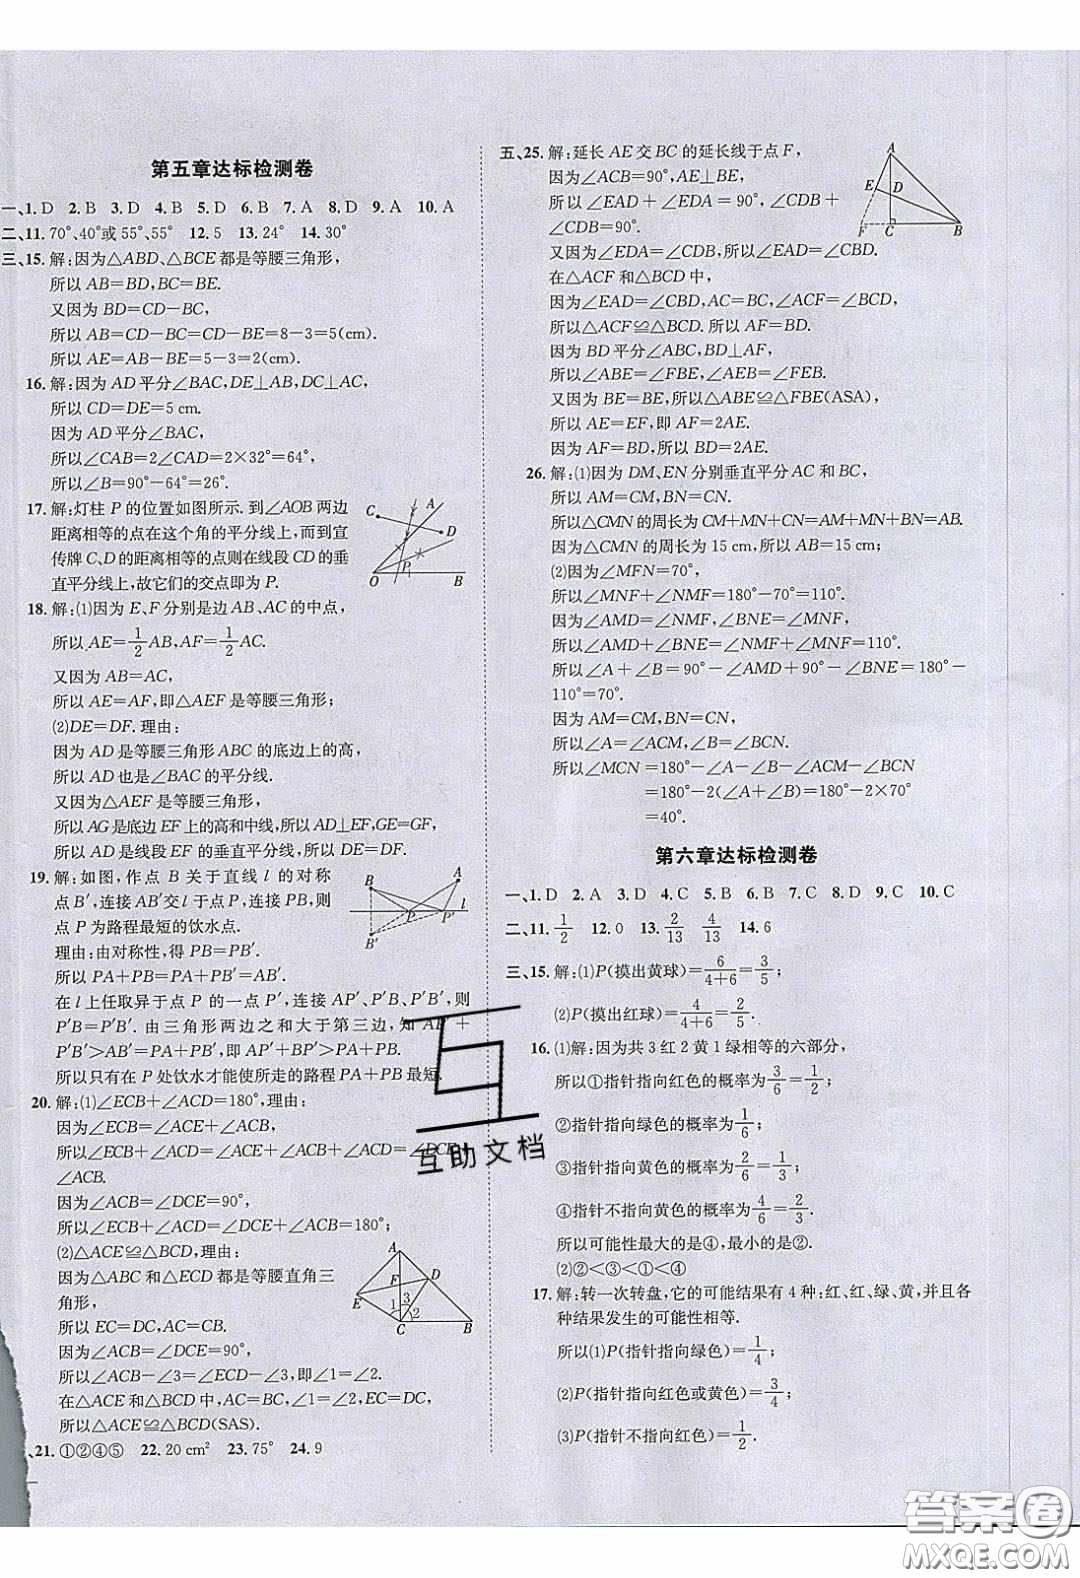 第五章达标检测卷
一、1. D 2. B 3. D 4. B 5. D 6. B 7. A 8. D 9. A 10. A
二、11. 70°、40°或 55°、55° 12. 5 13. 24° 14. 30°
三、15. 解:因为△ABD、△BCE 都是等腰三角形,
所以 AB=BD,BC=BE.
又因为 BD=CD-BC,
所以 AB=CD-BC=CD-BE=8-3=5(cm).
所以 AE=AB-BE=5-3=2(cm).
16. 解:因为 AD 平分∠BAC,DE⊥AB,DC⊥AC,
所以 CD=DE=5 cm.
因为 AD 平分∠BAC,
所以∠CAB=2∠CAD=2×32°=64°,
所以∠B=90°-64°=26°.
17. 解:灯柱 P 的位置如图所示. 到∠AOB 两边
距离相等的点在这个角的平分线上,而到宣
传牌 C、D 的距离相等的点则在线段 CD 的垂
直平分线上,故它们的交点即为 P.
C A D P O B
18. 解:(1)因为 E、F 分别是边 AB、AC 的中点,
所以 AE=1/2 AB,AF=1/2 AC.
又因为 AB=AC,
所以 AE=AF,即△AEF 是等腰三角形;
(2)DE=DF. 理由:
因为 AD 是等腰三角形 ABC 的底边上的高,
所以 AD 也是∠BAC 的平分线.
又因为△AEF 是等腰三角形,
所以 AG 是底边 EF 上的高和中线,所以 AD⊥EF,GE=GF,
所以 AD 是线段 EF 的垂直平分线,所以 DE=DF.
19. 解:如图,作点 B 关于直线 l 的对称
点 B′,连接 AB′交 l 于点 P,连接 PB,则
点 P 为路程最短的饮水点.
理由:由对称性,得 PB=PB′.
所以 PA+PB=PA+PB′=AB′.
在 l 上任取异于点 P 的一点 P′,连接 AP′、P′B、P′B′,则
P′B=P′B′. 由三角形两边之和大于第三边,知 AP′+
P′B′>AB′=PA+PB′,即 AP′+BP′>PA+PB.
所以只有在 P 处饮水才能使所走的路程 PA+PB 最短.
B A l P P′ B′
20. 解:(1)∠ECB+∠ACD=180°,理由:
因为∠ECB=∠ACE+∠ACB,
所以∠ECB+∠ACD=∠ACE+∠ACB+∠ACD=∠DCE+
∠ACB.
因为∠ACB=∠DCE=90°,
所以∠ECB+∠ACD=∠DCE+∠ACB=180°;
(2)△ACE≌△BCD,理由:
因为△ABC 和△ECD 都是等腰直角三
角形,
所以 EC=DC,AC=BC.
因为∠ACB=∠DCE=90°,
所以∠ACB-∠3=∠ECD-∠3,即∠1=∠2.
在△ACE 和△BCD 中,AC=BC,∠1=∠2,EC=DC,
所以△ACE≌△BCD(SAS).
A F D E 1 3 2 C B
21. ①②④⑤ 22. 20 cm² 23. 75° 24. 9
五、25. 解:延长 AE 交 BC 的延长线于点 F,
因为∠ACB=90°,AE⊥BE,
所以∠EAD+∠EDA=90°,∠CDB+
∠CDB=90°.
又因为∠EDA=∠CDB,所以∠EAD=∠CBD.
在△ACF 和△BCD 中,
因为∠EAD=∠CBD,AC=BC,∠ACF=∠BCD,
所以△ACF≌△BCD. 所以 AF=BD.
因为 BD 平分∠ABC,
所以∠ABE=∠FBE,∠AEB=∠FEB.
又因为 BE=BE,所以△ABE≌△FBE(ASA),
所以 AE=EF,即 AF=2AE.
因为 AF=BD,所以 BD=2AE.
A E D F C B
26. 解:(1)因为 DM、EN 分别垂直平分 AC 和 BC,
所以 AM=CM,BN=CN.
所以△CMN 的周长为 CM+MN+CN=AM+MN+BN=AB.
因为△CMN 的周长为 15 cm,所以 AB=15 cm;
(2)因为∠MFN=70°,
所以∠MNF+∠NMF=180°-70°=110°.
因为∠AMD=∠NMF,∠BNE=∠MNF,
所以∠AMD+∠BNE=∠NMF+∠MNF=110°.
所以∠A+∠B=90°-∠AMD+90°-∠BNE=180°-
110°=70°.
因为 AM=CM,BN=CN,
所以∠A=∠ACM,∠B=∠BCN.
所以∠MCN=180°-∠A-∠B-∠ACM-∠BCN
=180°-2(∠A+∠B)=180°-2×70°
=40°.
第六章达标检测卷
一、1. D 2. A 3. D 4. C 5. B 6. B 7. C 8. D 9. C 10. C
二、11. 1/2 12. 0 13. 2/13 4/13 14. 6
三、15. 解:(1)P(摸出黄球)=6/(4+6)=3/5;
(2)P(摸出红球)=4/(4+6)=2/5.
16. (1)解:因为共 3 红 2 黄 1 绿相等的六部分,
所以①指针指向红色的概率为3/6=1/2;
②指针指向绿色的概率为1/6;
③指针指向黄色的概率为2/6=1/3;
④指针不指向黄色的概率为4/6=2/3;
所以可能性最大的是④,最小的是②.
(2)②<③<①<④
17. 解:转一次转盘,它的可能结果有 4 种:红、红、绿、黄,并且各
种结果发生的可能性相等.
所以(1)P(指针指向绿色)=1/4;
(2)P(指针指向红色或黄色)=3/4;
(3)P(指针不指向红色)=1/2.
互助文档
答案圈
MXQE.COM